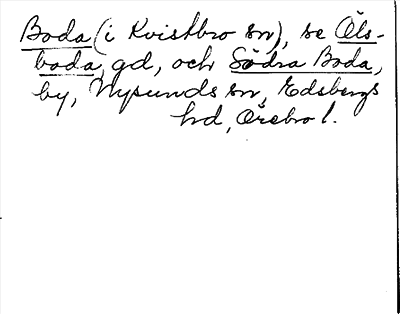 Boda (i Kvistbro sn), se Öls-
boda, gd, och Södra Boda,
by, Nysunds sn, Edsbergs
hd, Örebro l.